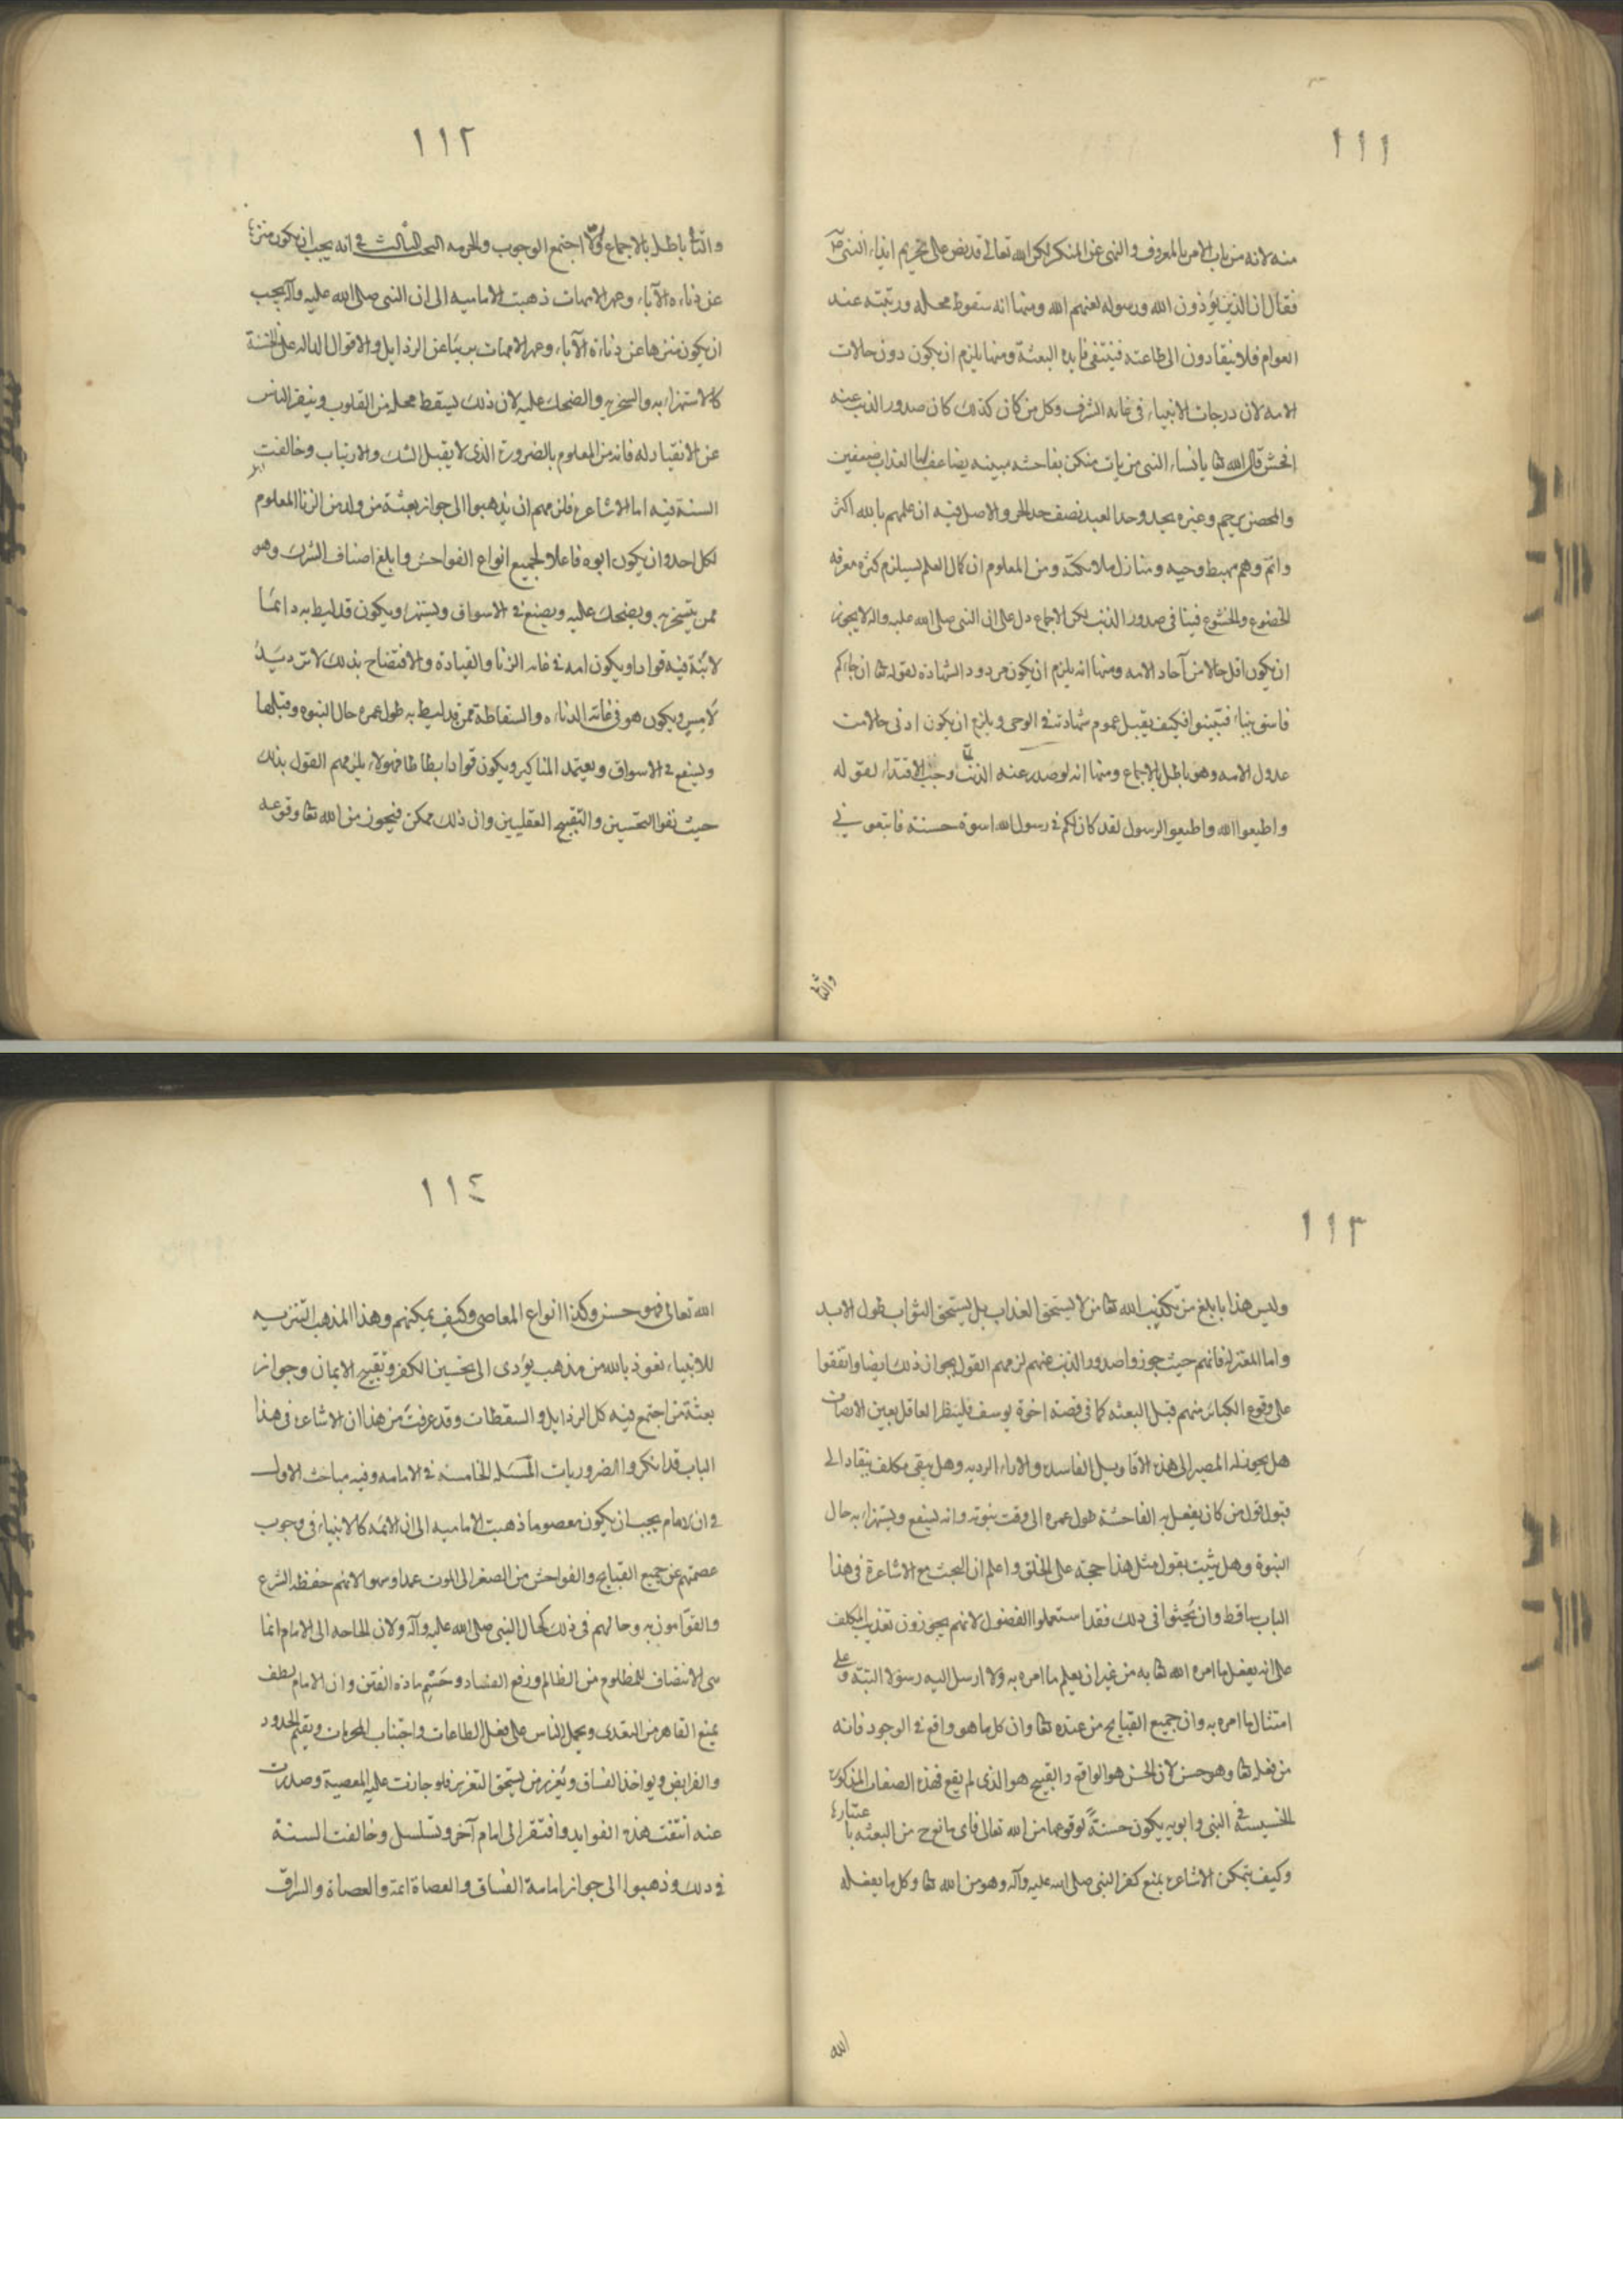 ١١١
منه لانه من باب الامر بالمعروف والنهى عن المنكر لكن الله تعالى قد نص على تحريم ايذاء النبى ص
فقال ان الذين يؤذون الله ورسوله لعنهم الله ومنها انه سقوط محله ورتبته عند
العوام فلا ينقادون الى طاعته فينتفى فايدة البعثة ومنها يلزم ان يكون دون حالات
الامه لان درجات الانبياء فى غاية الشرف وكل من كان كذلك كان صدور الذنب عنه
افحش قال الله تعا يا نساء النبى من يات منكن بفاحشه مبينه يضاعف لها العذاب ضعفين
والمحصن يرجم وغيره يحد وحد العبد نصف حد الحر والاصل فيه ان علمهم بالله اكثر
واتم وهم مهبط وحيه ومنازل ملائكته ومن المعلوم ان كمال العلم يستلزم كثرة معرفه
الخضوع والخشوع فينافى صدور الذنب لكن الاجماع دل على ان النبى صلى الله عليه واله لا يجوز
ان يكون اقل حالا من آحاد الامه ومنها انه يلزم ان يكون مردود الشهاده لقوله تعا ان جاءكم
فاسق بنباء فتبينوا فكيف يقبل عموم شهادته فى الوحى ويلزم ان يكون ادنى حالا من
عدول الامه وهو باطل بالاجماع ومنها انه لو صدر عنه الذنب وجب الاقتداء لقوله
واطيعوا الله واطيعوا الرسول لقد كان لكم فى رسول الله اسوة حسنة فاتبعونى
والتا
١١٢
والتا باطل بالاجماع والا اجتمع الوجوب والحرمه البحث الثالث فى انه يجب ان يكون منزها
عن دناءه الآباء وعهر الامهات ذهبت الاماميه الى ان النبى صلى الله عليه وآله يجب
ان يكون منزها عن دناءة الآباء وعهر الامهات بريئا عن الرذايل والافعال الداله على الخسة
كالاستهزاء به والسخريه والضحك عليه لان ذلك يسقط محله من القلوب وينفر الناس
عن الانقياد له فانه من المعلوم بالضرورة الذى لا يقبل الشك والارتياب وخالفت
السنة فيه اما الاشاعره فلزمهم ان يذهبوا الى جواز بعثة من ولد من الزنا المعلوم
لكل احد وان يكون ابوه فاعلا لجميع انواع الفواحش وابلغ اصناف الشرك وهو
ممن يتسخر به ويضحك عليه ويصفع فى الاسواق ويستهزء ويكون قد ليط به دائما
لابنة فيه قوادا ويكون امه فى غايه الزنا والقيادة والافتضاح بذلك لا ترد يد
لامس ويكون هو فى غاية الدناءه والسقاطة ممن قد ليط به طول عمره حال النبوه وقبلها
ويصفع فى الاسواق ويعتمد المناكير ويكون قوادا بطاطا فهولاء يلزمهم القول بذلك
حيث نفوا التحسين والتقبيح العقليين وان ذلك ممكن فيجوز من الله تعا وقوعه
١١٣
وليس هذا بابلغ من تكذيب الله تعا من لا يستحق العذاب بل يستحق الثواب طول الابد
واما المعتزله فانهم حيث جوزوا صدور الذنب عنهم لزمهم القول بجواز ذلك ايضا واتفقوا
على وقوع الكبائر منهم قبل البعثه كما فى قصة اخوة يوسف فلينظر العاقل بعين الانصاف
هل يجوز له المصير الى هذه الاقاويل الفاسده والاراء الرديه وهل يبقى مكلف ينقاد الى
قبول قول من كان يفعل به الفاحشة طول عمره الى وقت نبوته وانه يصفع ويستهزاء به حال
النبوة وهل يثبت بقول مثل هذا حجة على الخلق واعلم ان البحث مع الاشاعرة فى هذا
الباب ساقط وان بحثوا فى ذلك فقد استعملوا الفضول لانهم يجوزون تعذيب المكلف
على انه يفعل ما امره الله تعا به من غير ان يعلم ما امره به ولا ارسل اليه رسولا البتة وعلى
امتثال ما امره به وان جميع القبايح من عنده تعا وان كل ما هو واقع فى الوجود فانه
من فعله تعا وهو حسن لان الحسن هو الواقع والقبيح هو الذى لم يقع فهذه الصفات المذكورة
الخسيسة فى النبى وابويه يكون حسنة لوقوعها من الله تعالى فاى مانع ح من البعثه باعتبارها
وكيف يتمكن الاشاعره بمنع كفر النبى صلى الله عليه وآله وهو من الله تعا وكل ما يفعله
الله
١١٤
الله تعالى فهو حسن وكذا انواع المعاصى وكيف يمكنهم وهذا المذهب التنزيه
للانبياء نعوذ بالله من مذهب يؤدى الى تحسين الكفر وتقبيح الايمان وجواز
بعثة من اجتمع فيه كل الرذايل والسقطات وقد عرفت من هذا ان الاشاعره فى هذا
الباب قد انكروا الضروريات المسئله الخامسه فى الامامه وفيه مباحث الاول
فى ان الامام يجب ان يكون معصوما ذهبت الاماميه الى ان الائمه كالانبياء فى وجوب
عصمتهم عن جميع القبايح والفواحش من الصغر الى الموت عمدا وسهوا لانهم حفظه الشرع
والقوامون به وحالهم فى ذلك كحال النبى صلى الله عليه وآله ولان الحاجه الى الامام انما
هى للانتصاف للمظلوم من الظالم ورفع الفساد وحسم مادة الفتن وان الامام لطف
يمنع القاهر من التعدى ويحمل الناس على فعل الطاعات واجتناب المحرمات ويقيم الحدود
والفرايض ويواخذ الفساق ويعزر من يستحق التعزير فلو جازت عليه المعصية وصدرت
عنه انتفت هذه الفوايد وافتقر الى امام آخر وتسلسل وخالفت السنة
فى ذلك وذهبوا الى جواز امامة الفساق والعصاة ائمة والعصاة والسراق